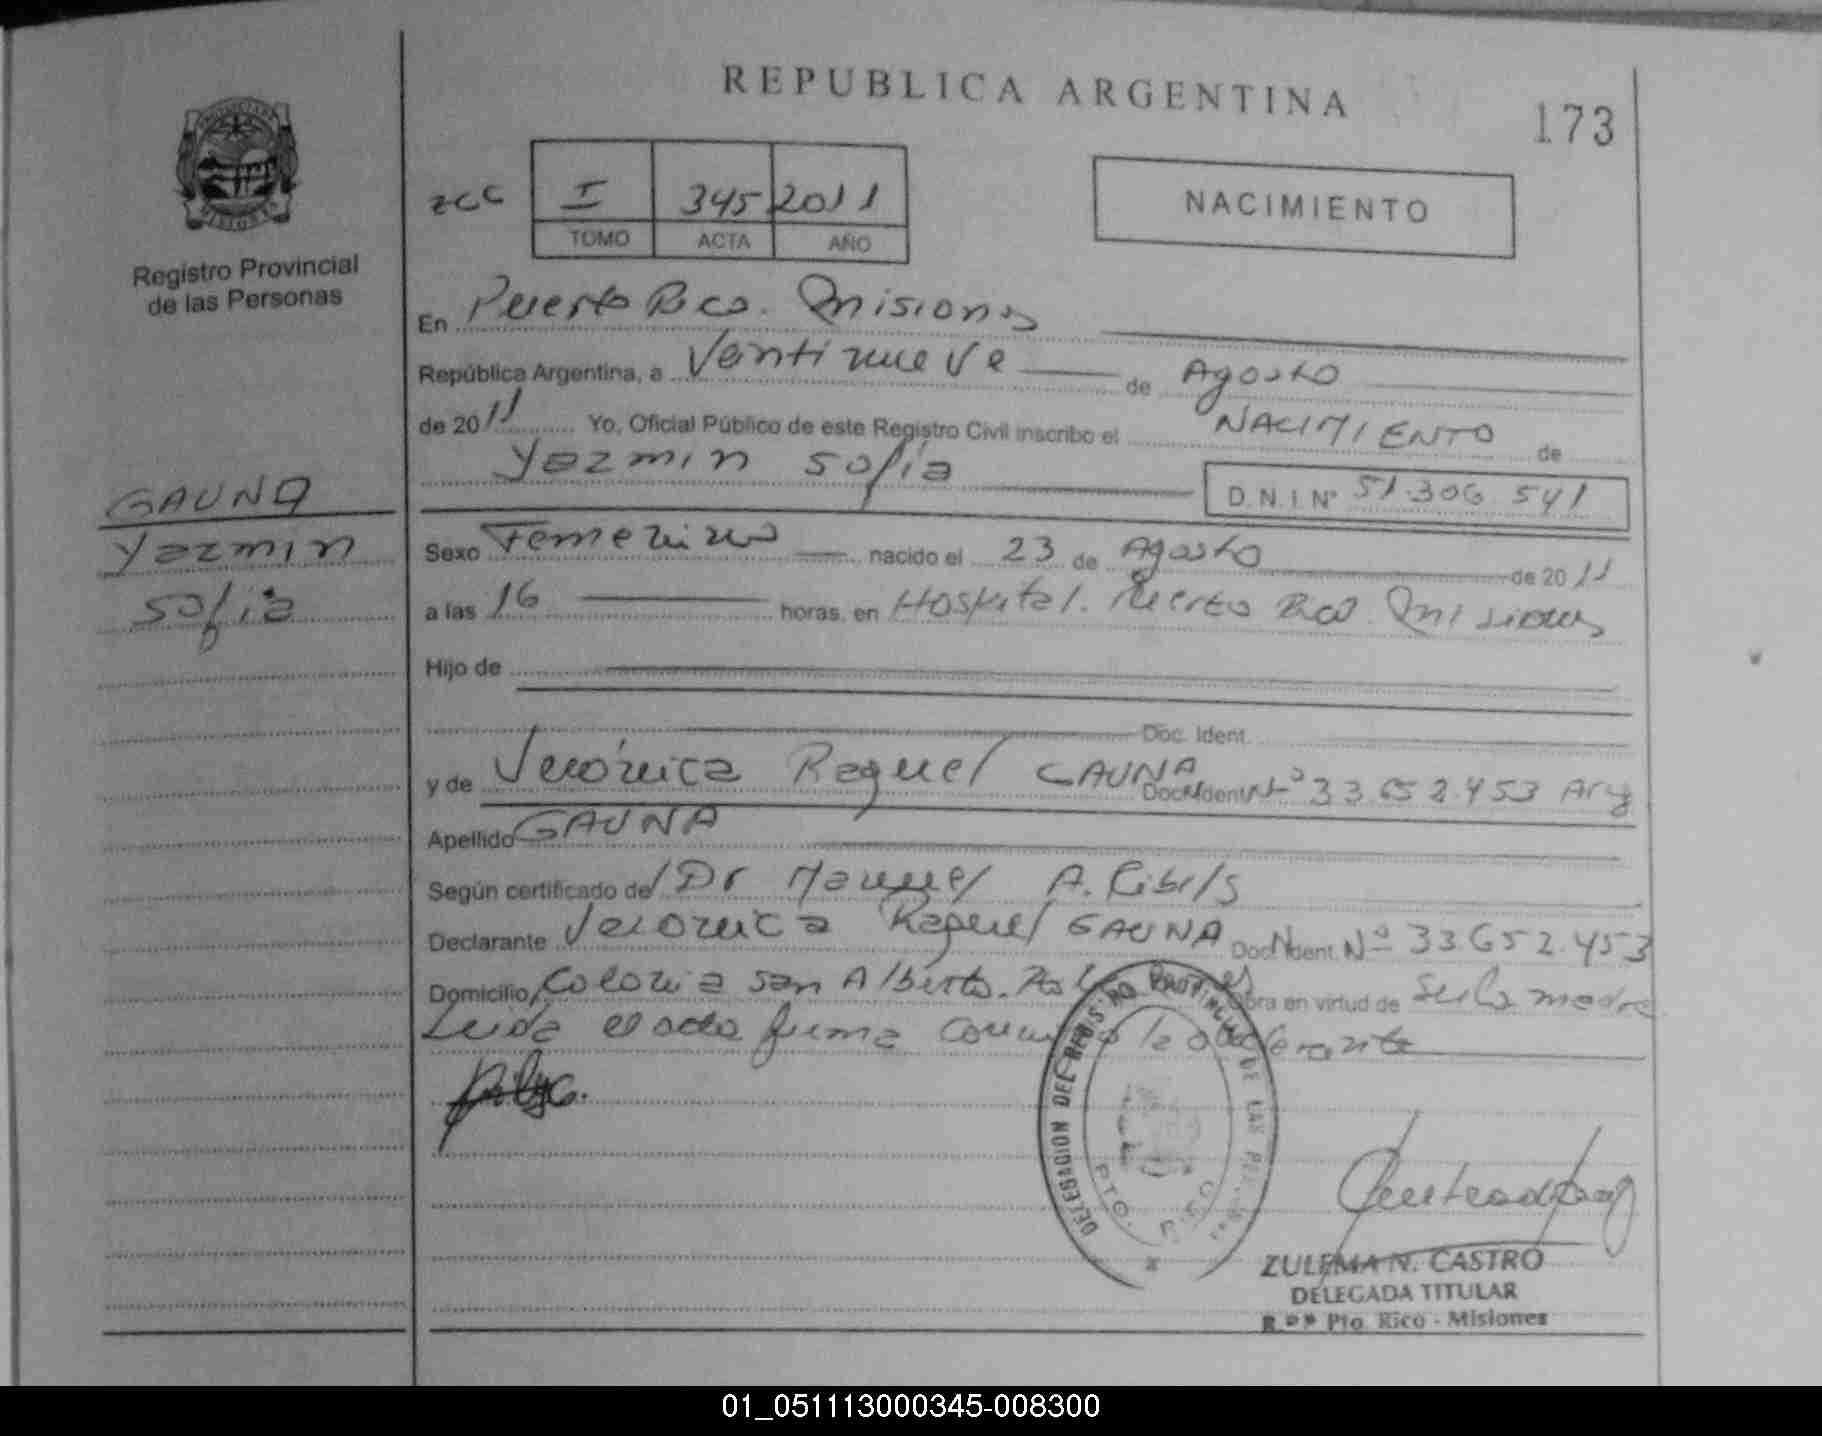 REPUBLICA ARGENTINA
173
PROVINCIA DE MISIONES
Registro Provincial
de las Personas
I 345 2011
TOMO ACTA AÑO
NACIMIENTO
En Puerto Rico. Misiones
República Argentina, a Veintinueve de Agosto
de 2011 Yo, Oficial Público de este Registro Civil inscribo el NACIMIENTO de
Yazmin Sofia D.N.I. Nº 51.306.541
GAUNA
Yazmin
Sofia
Sexo Femenino nacido el 23 de Agosto de 2011
a las 16 horas, en Hospital. Puerto Rico. Misiones
Hijo de
Doc. Ident.
y de Verónica Raquel GAUNA Doc. Ident. Nº 33.652.453 Arg
Apellido GAUNA
Según certificado del Dr Manuel A. Ribils
Declarante Veronica Raquel GAUNA Doc. Ident. Nº 33.652.453
Domicilio Colonia San Alberto. Obra en virtud de Ser la madre
Leida el acta firma conmigo la declarante
DELEGACION DEL REGISTRO PROVINCIAL DE LAS PERSONAS
PTO. RICO
ZULEMA N. CASTRO
DELEGADA TITULAR
R.P.P. Pto. Rico - Misiones
01_051113000345-008300